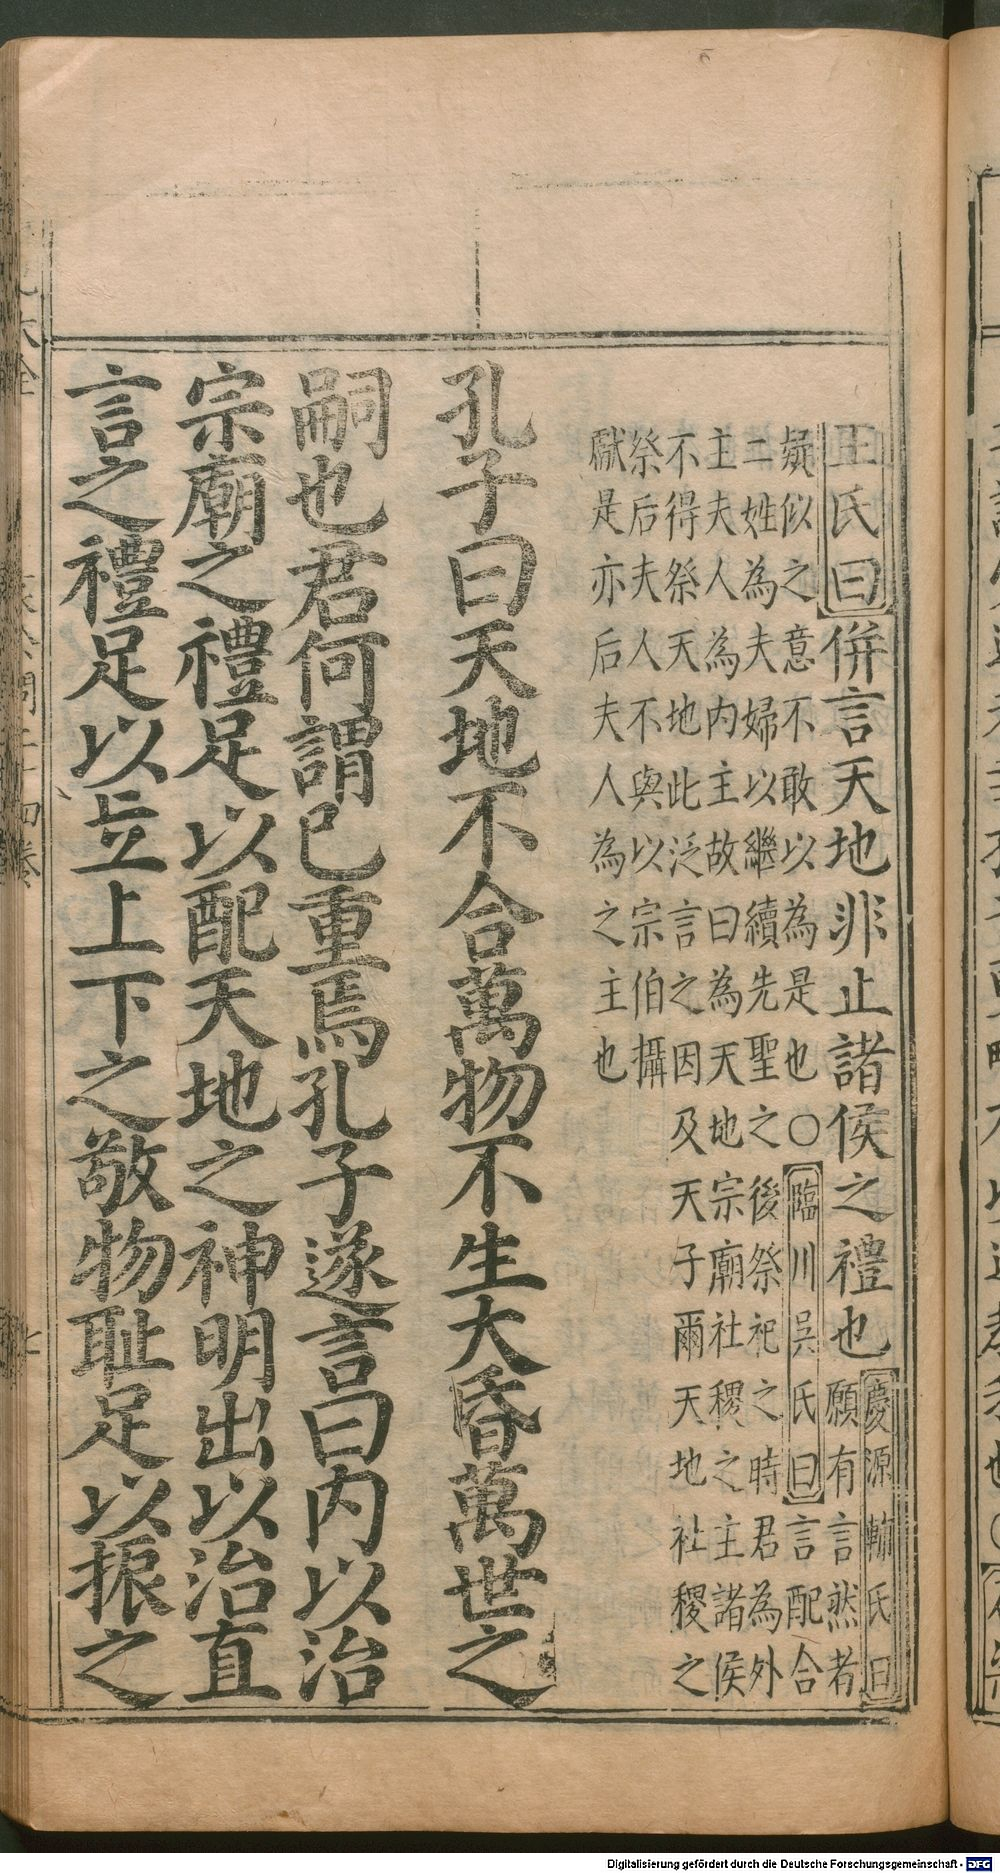 王氏曰併言天地非止諸侯之禮也慶源輔氏曰
願有言然者
疑似之意不敢以為是也○臨川吳氏曰言配合
二姓為夫婦以繼續先聖之後祭祀之時君為外
主夫人為内主故曰為天地宗廟社稷之主諸侯
不得祭天地此泛言之因及天子爾天地社稷之
祭后夫人不與以宗伯攝
獻是亦后夫人為之主也
孔子曰天地不合萬物不生大昏萬世之
嗣也君何謂已重焉孔子遂言曰内以治
宗廟之禮足以配天地之神明出以治直
言之禮足以立上下之敬物耻足以振之
Digitalisierung gefördert durch die Deutsche Forschungsgemeinschaft - DFG